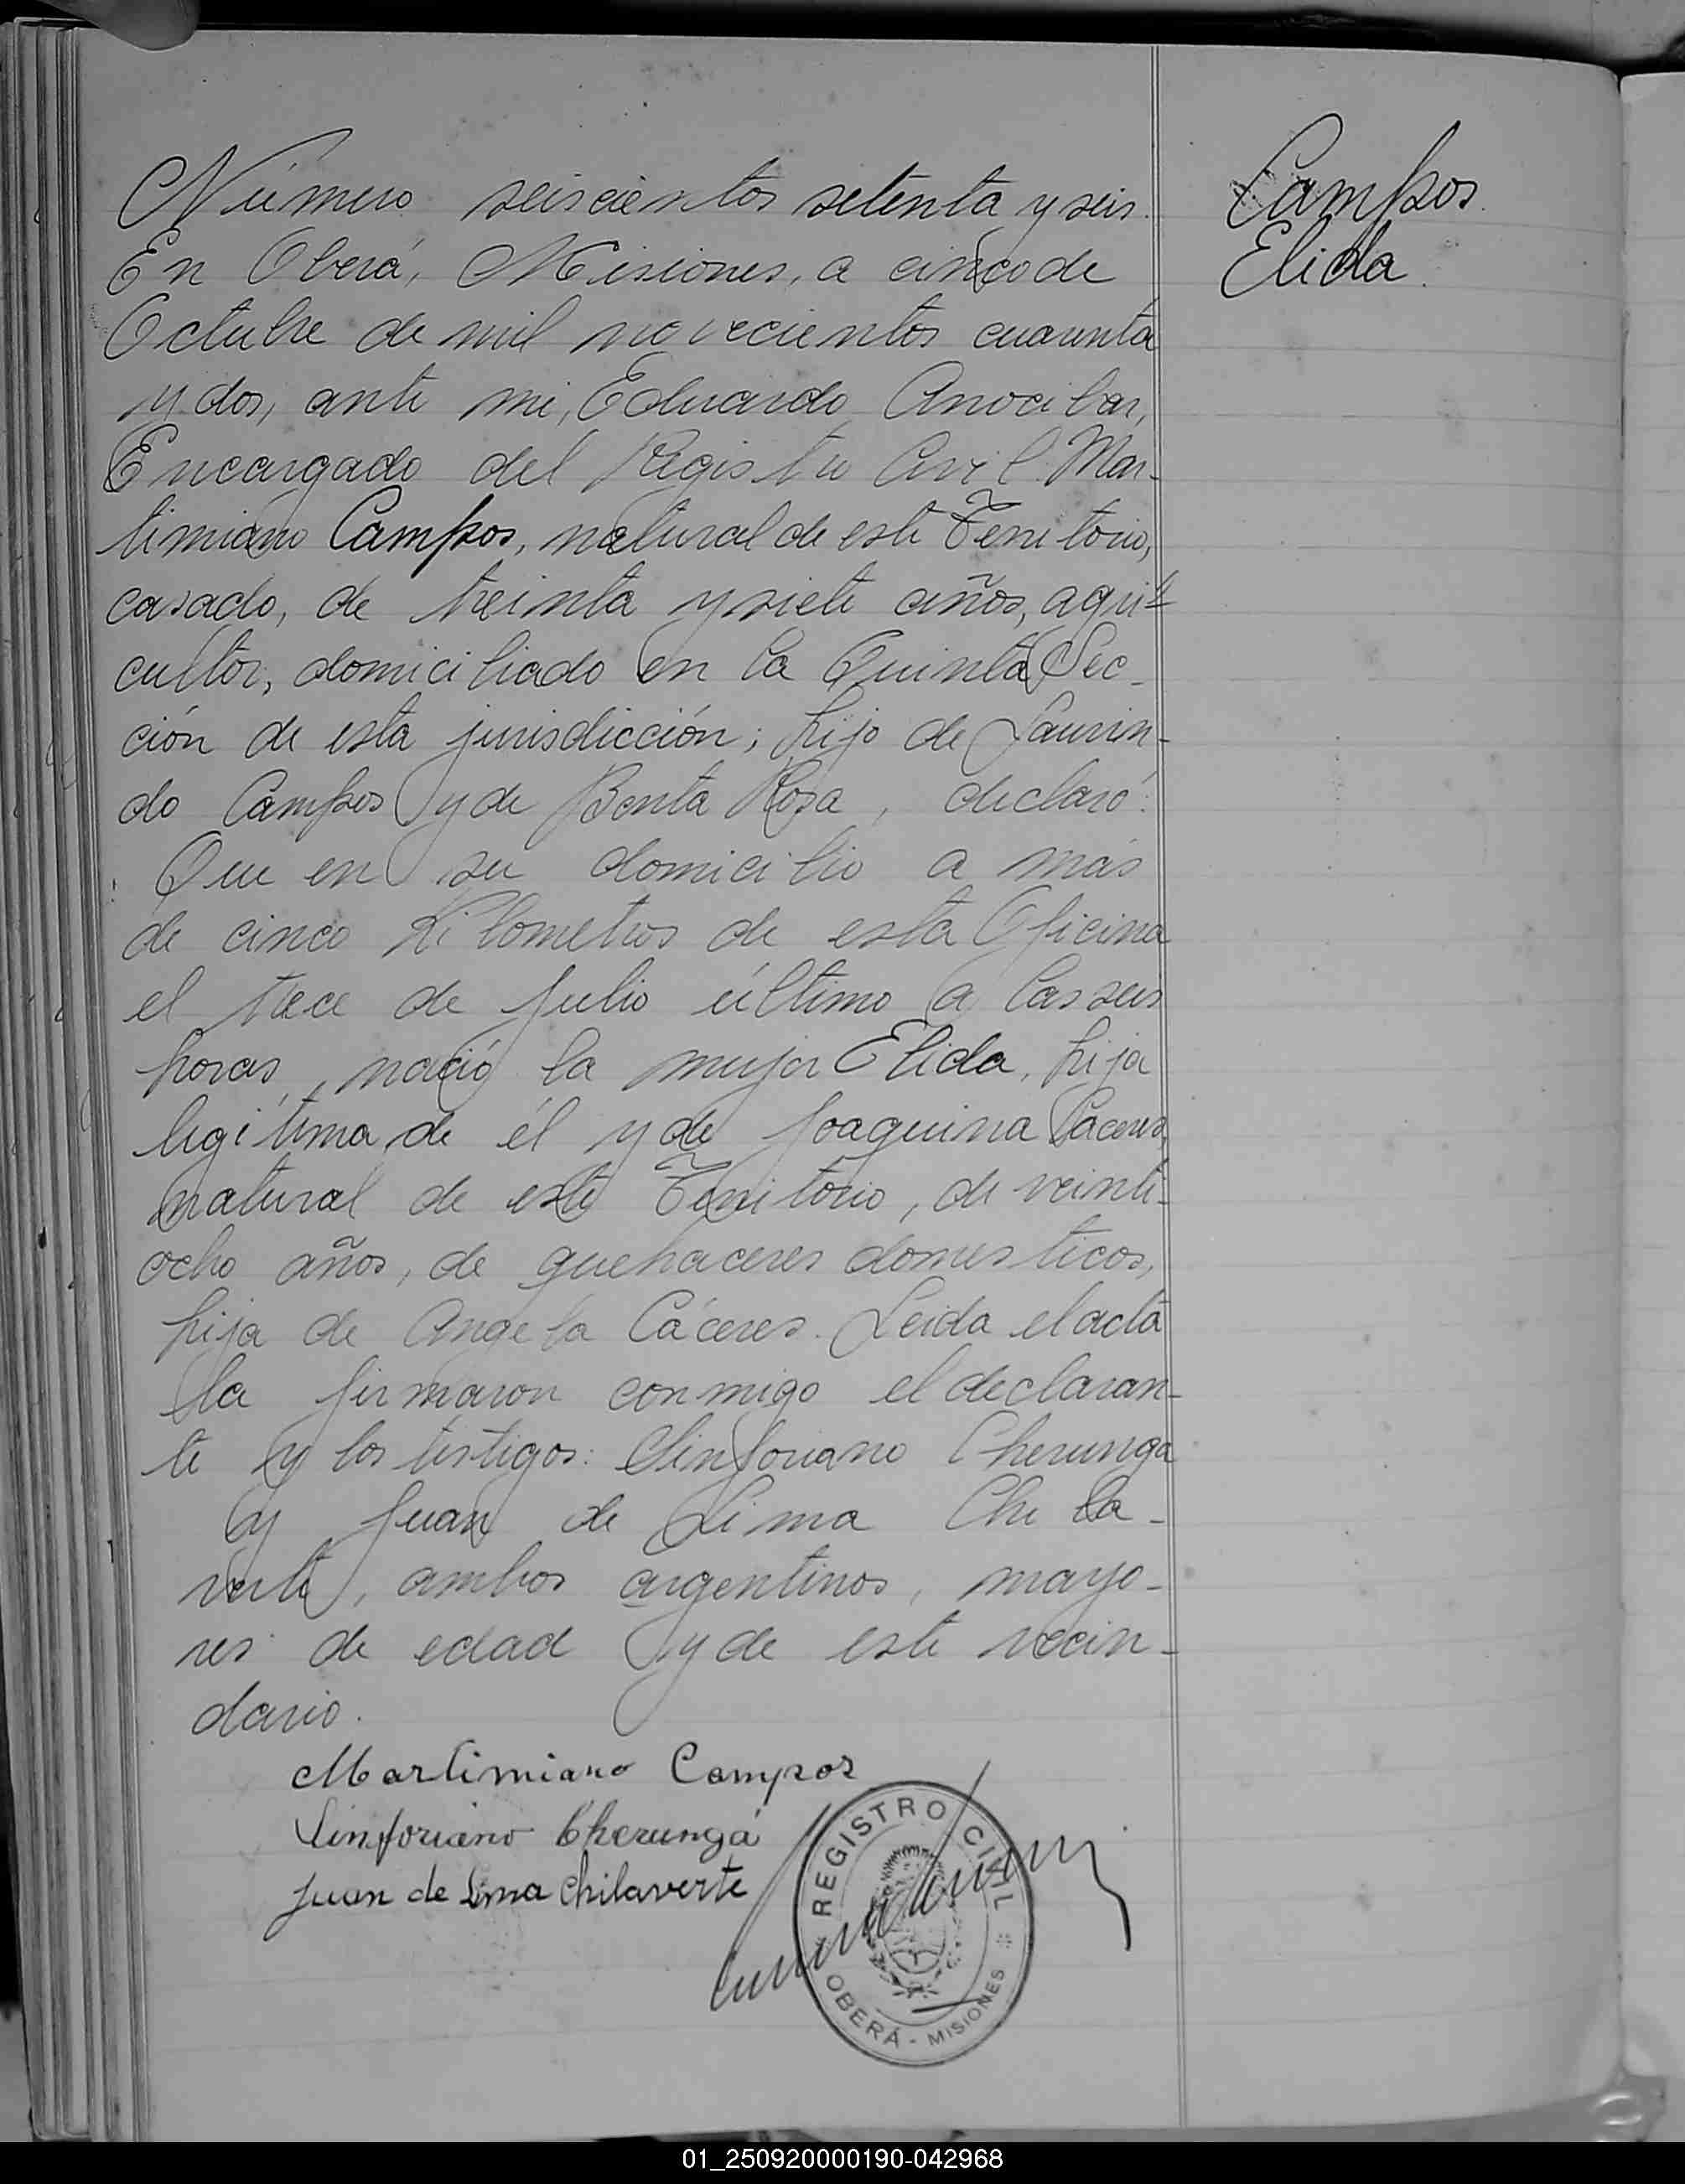 Número seiscientos setenta y seis.
Campos
Elida.
En Oberá, Misiones, a cinco de
Octubre de mil novecientos cuarenta
y dos, ante mi, Eduardo Anocibar,
Encargado del Registro Civil Mar-
timiano Campos, natural de este Territorio,
casado, de treinta y siete años, agri-
cultor, domiciliado en la Quinta Sec-
ción de esta jurisdicción; hijo de Laurin-
do Campos y de Benta Rosa, declaró:
Que en su domicilio a más
de cinco Kilometros de esta Oficina
el trece de Julio último a las seis
horas, nació la mujer Elida, hija
legítima de él y de Joaquina Caceres,
natural de este Territorio, de veinti-
ocho años, de quehaceres domesticos,
hija de Angela Cáceres. Leida el acta
la firmaron conmigo el declaran-
te y los testigos: Sinforiano Cherunga
y Juan de Lima Chila-
verte, ambos argentinos, mayo-
res de edad y de este vecin-
dario.
Martimiano Campos
Sinforiano Cherungá
Juan de Lima Chilaverte
REGISTRO CIVIL
OBERÁ - MISIONES
01_250920000190-042968